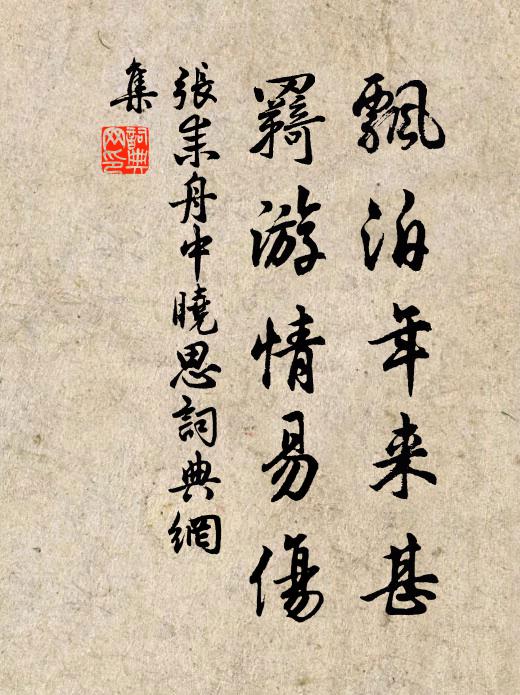 飄泊年来甚
羇游情易傷
張耒舟中曉思詞典網
集
詞典网印